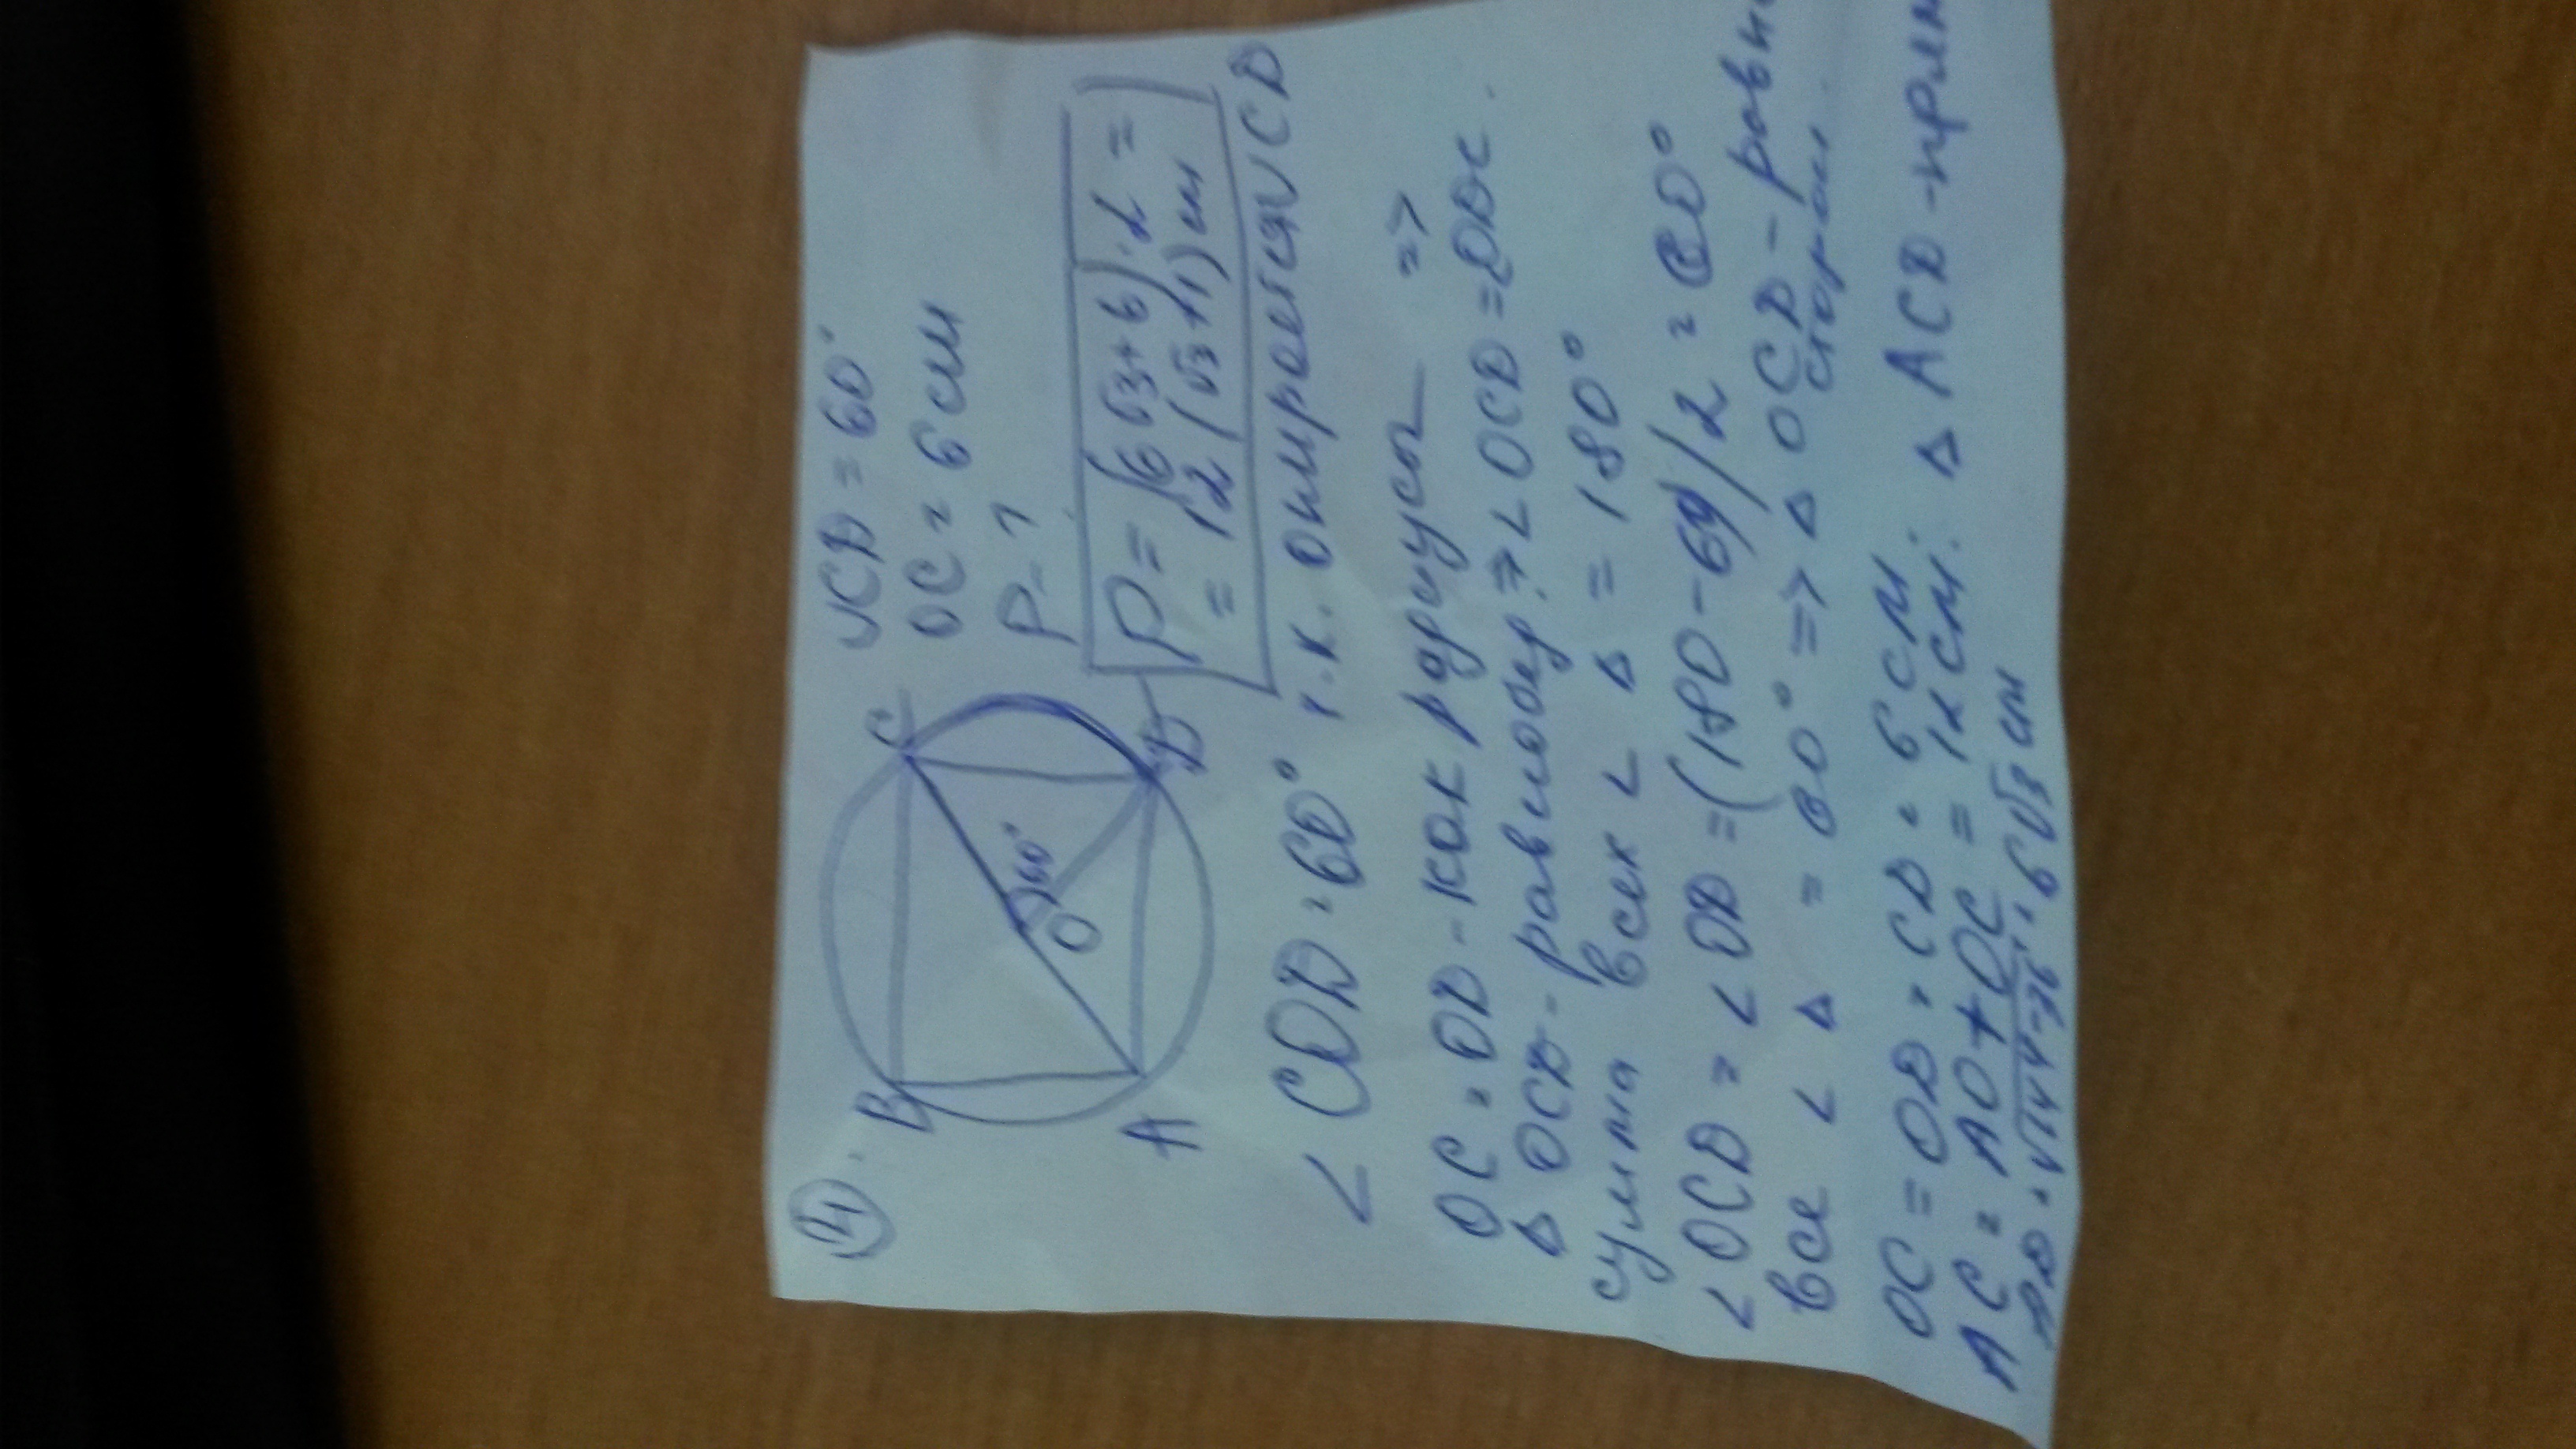 4.
B
C
A
D
O
60°
∪CD = 60°
OC = 6 см
P - ?
P = (6√3 + 6) · 2 =
= 12 (√3 + 1) см
∠ COD = 60° т.к. опирается ∪CD
OC = OD - как радиусы =>
Δ OCD - равнобедр. => ∠ OCD = ODC.
сумма всех ∠ Δ = 180°
∠ OCD = ∠ OD = (180 - 60)/2 = 60°
все ∠ Δ = 60° => Δ OCD - равн
сторон.
OC = OD = CD = 6 см
AC = AO + OC = 12 см. Δ ACD - прям
AD = √144-36 = 6√3 см